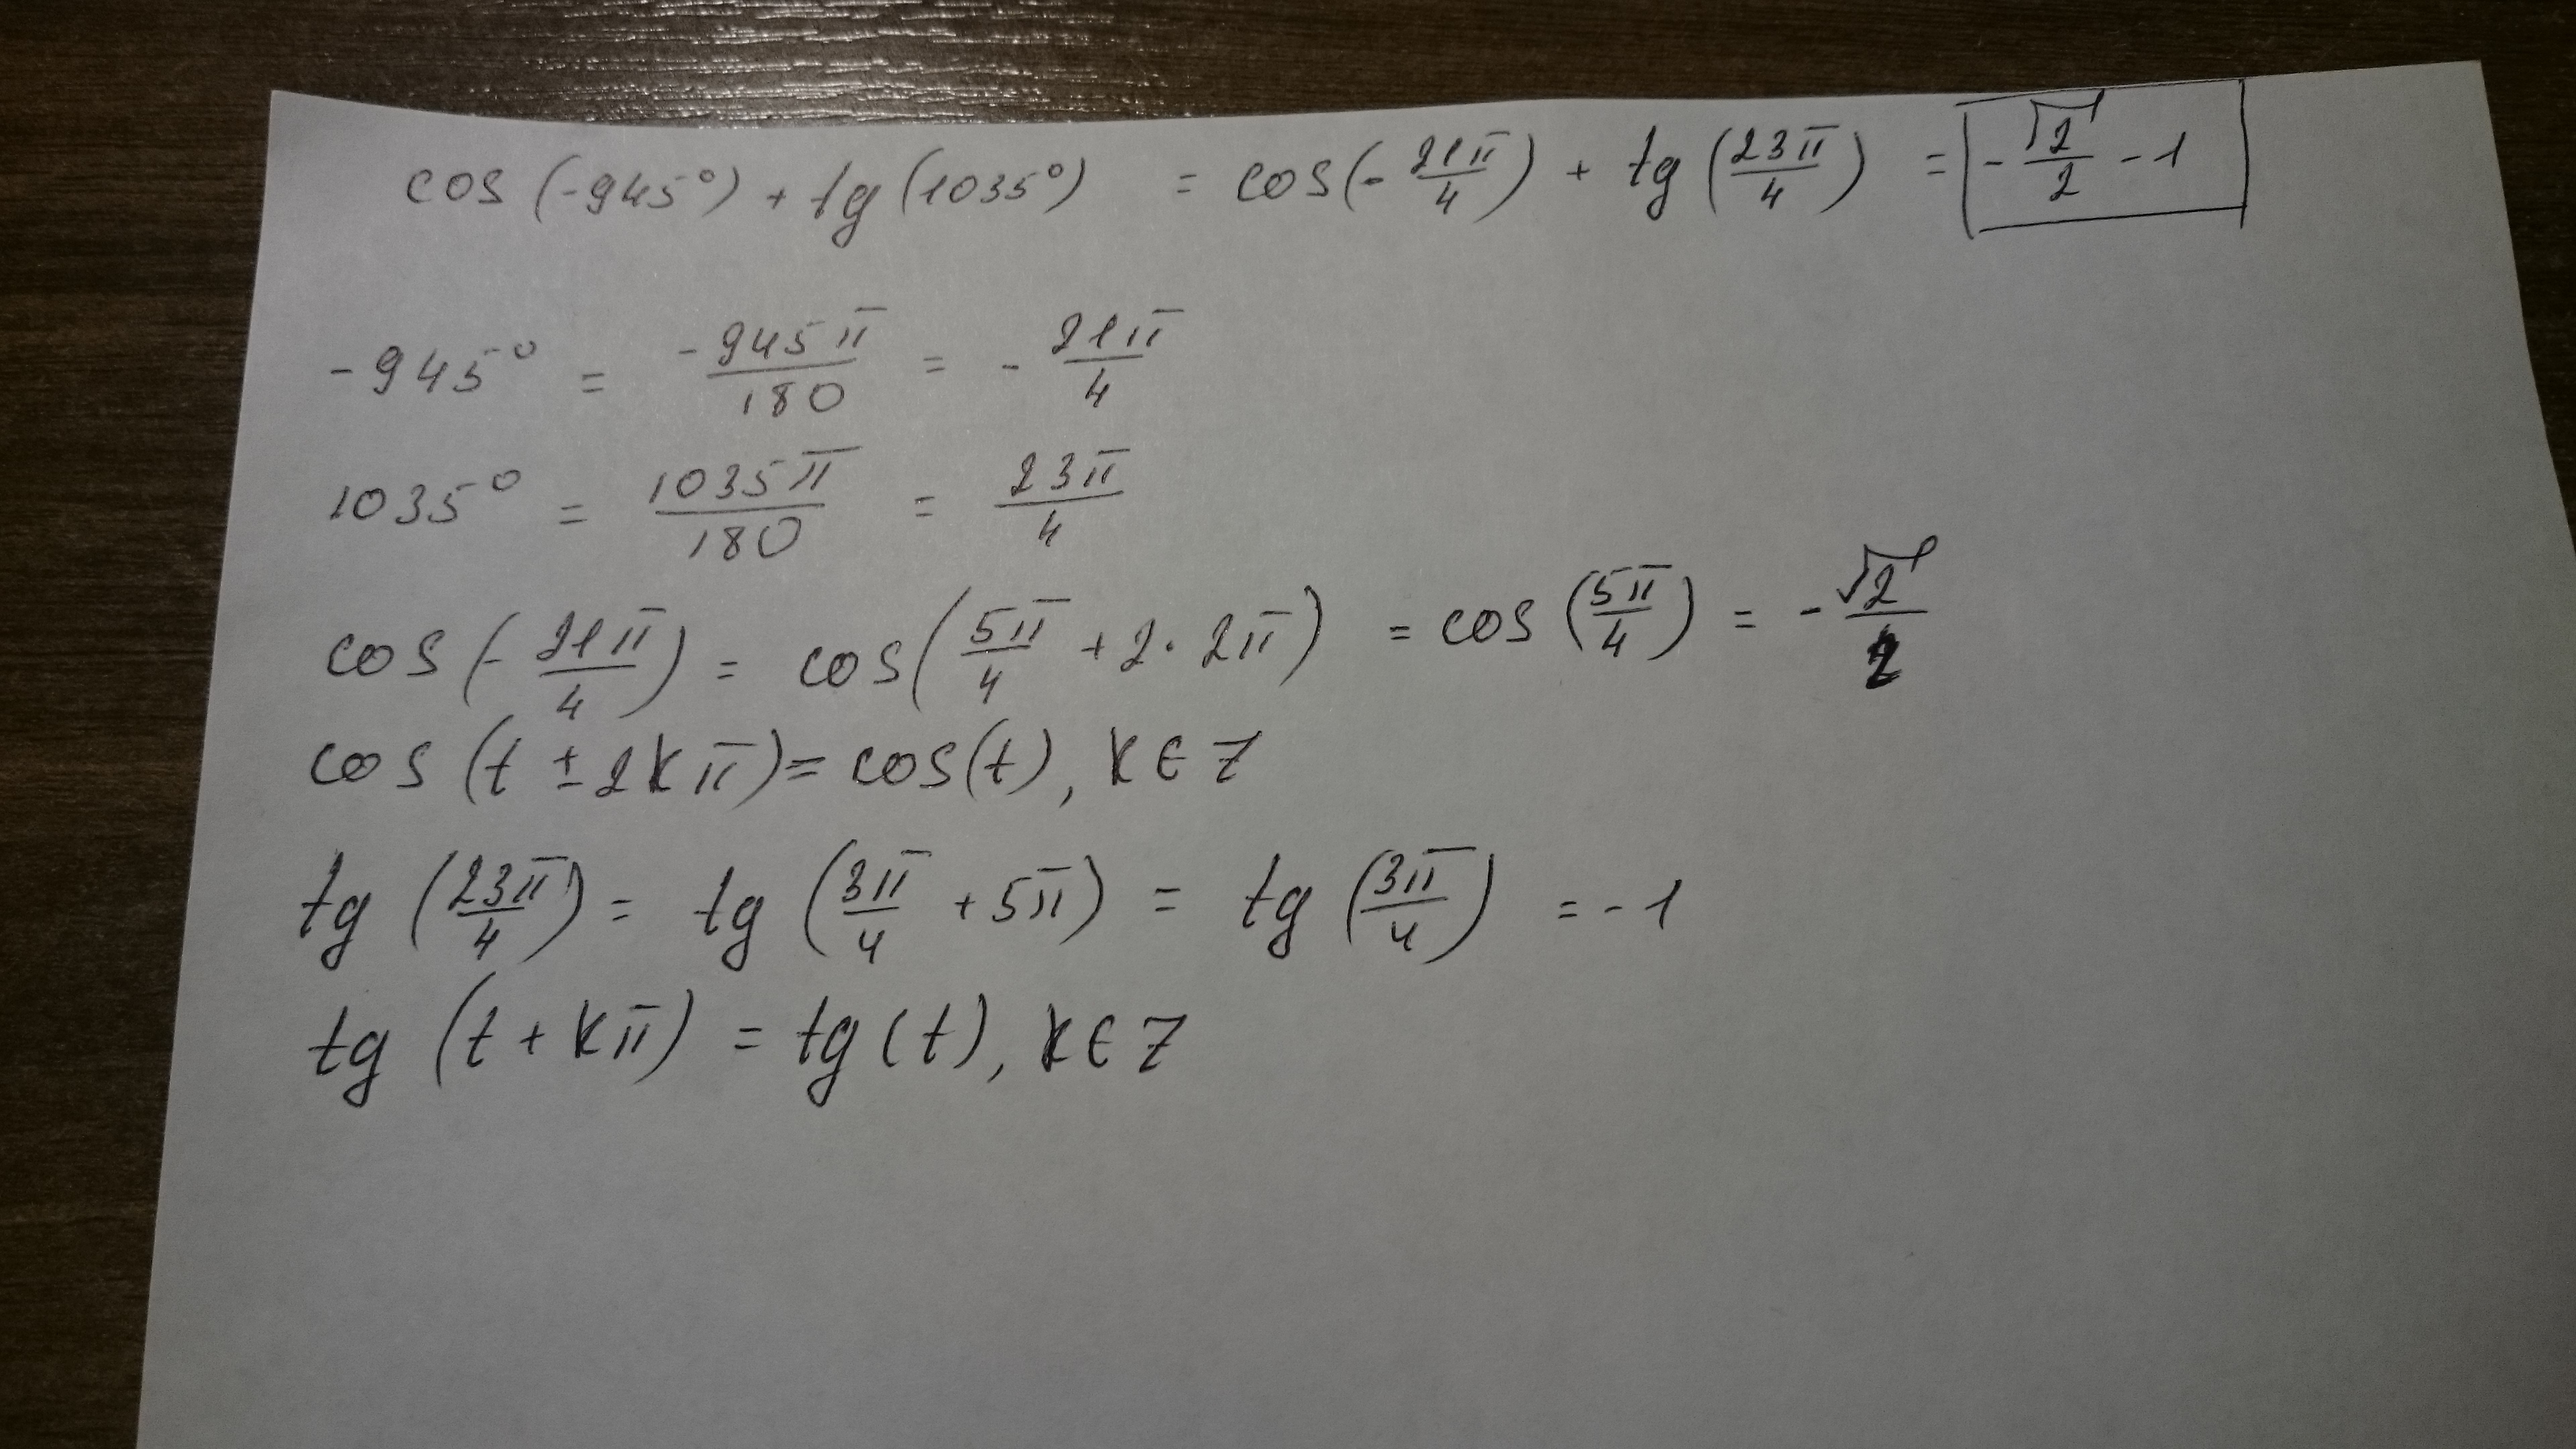 cos (-945°) + tg (1035°) = cos(-21π/4) + tg (23π/4) = -√2/2 - 1
-945° = -945π/180 = -21π/4
1035° = 1035π/180 = 23π/4
cos (-21π/4) = cos(5π/4 + 2·2π) = cos (5π/4) = -√2/2
cos (t ± 2kπ) = cos(t), k ∈ Z
tg (23π/4) = tg (3π/4 + 5π) = tg (3π/4) = -1
tg (t + kπ) = tg(t), k ∈ Z